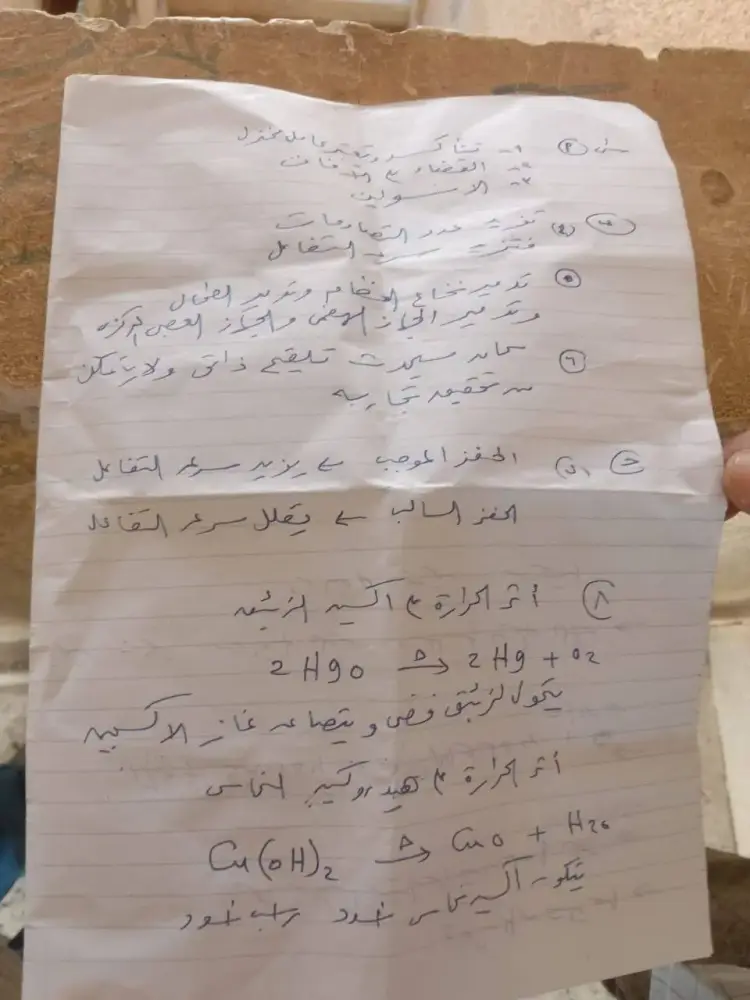 س٢ ١- تأكسد وتعتبر عامل مختزل
٢- الفضاء
٣- الانسولين
تزيد عدد التصادمات
فتزيد سرعة التفاعل
٥ تدمير نخاع العظام وتدمير الطحال
وتدمير الجهاز الهضمي والجهاز العصبي المركزي
٦ سيحدث تلقيح ذاتي ولا يتمكن
من تحقيق تجاربه
الحفز الموجب ← يزيد سرعة التفاعل
الحفز السالب ← يقلل سرعة التفاعل
٨ أثر الحرارة على اكسيد الزئبق
2HgO →Δ 2Hg + O2
الزئبق فضي ويتصاعد غاز الاكسجين
أثر الحرارة على هيدروكسيد النحاس
Cu(OH)2 →Δ CuO + H2O
يتكون أكسيد نحاس اسود راسب اسود